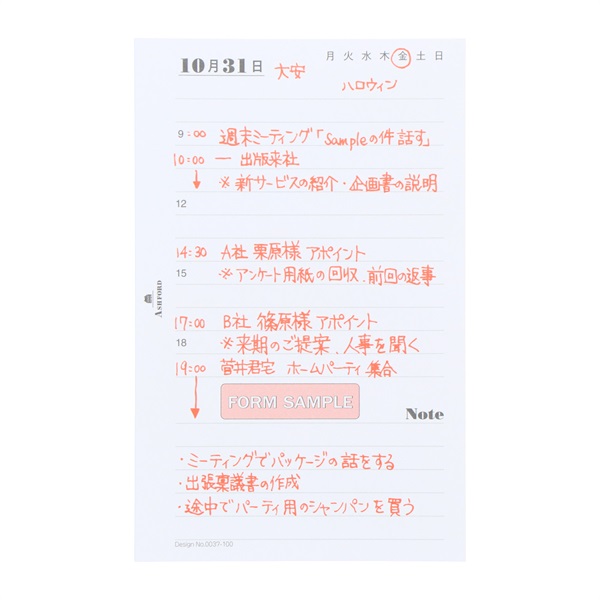 10月31日
月 火 水 木 金 土 日
大安
ハロウィン
9:00 週末ミーティング「Sampleの件話す」
10:00 ー 出版来社
※新サービスの紹介・企画書の説明
12
14:30 A社 栗原様 アポイント
15 ※アンケート用紙の回収、前回の返事
ASHFORD
17:00 B社 篠原様 アポイント
18 ※来期のご提案、人事を聞く
19:00 菅井君宅 ホームパーティ集合
FORM SAMPLE
Note
・ミーティングでパッケージの話をする
・出張稟議書の作成
・途中でパーティ用のシャンパンを買う
Design No.0037-100